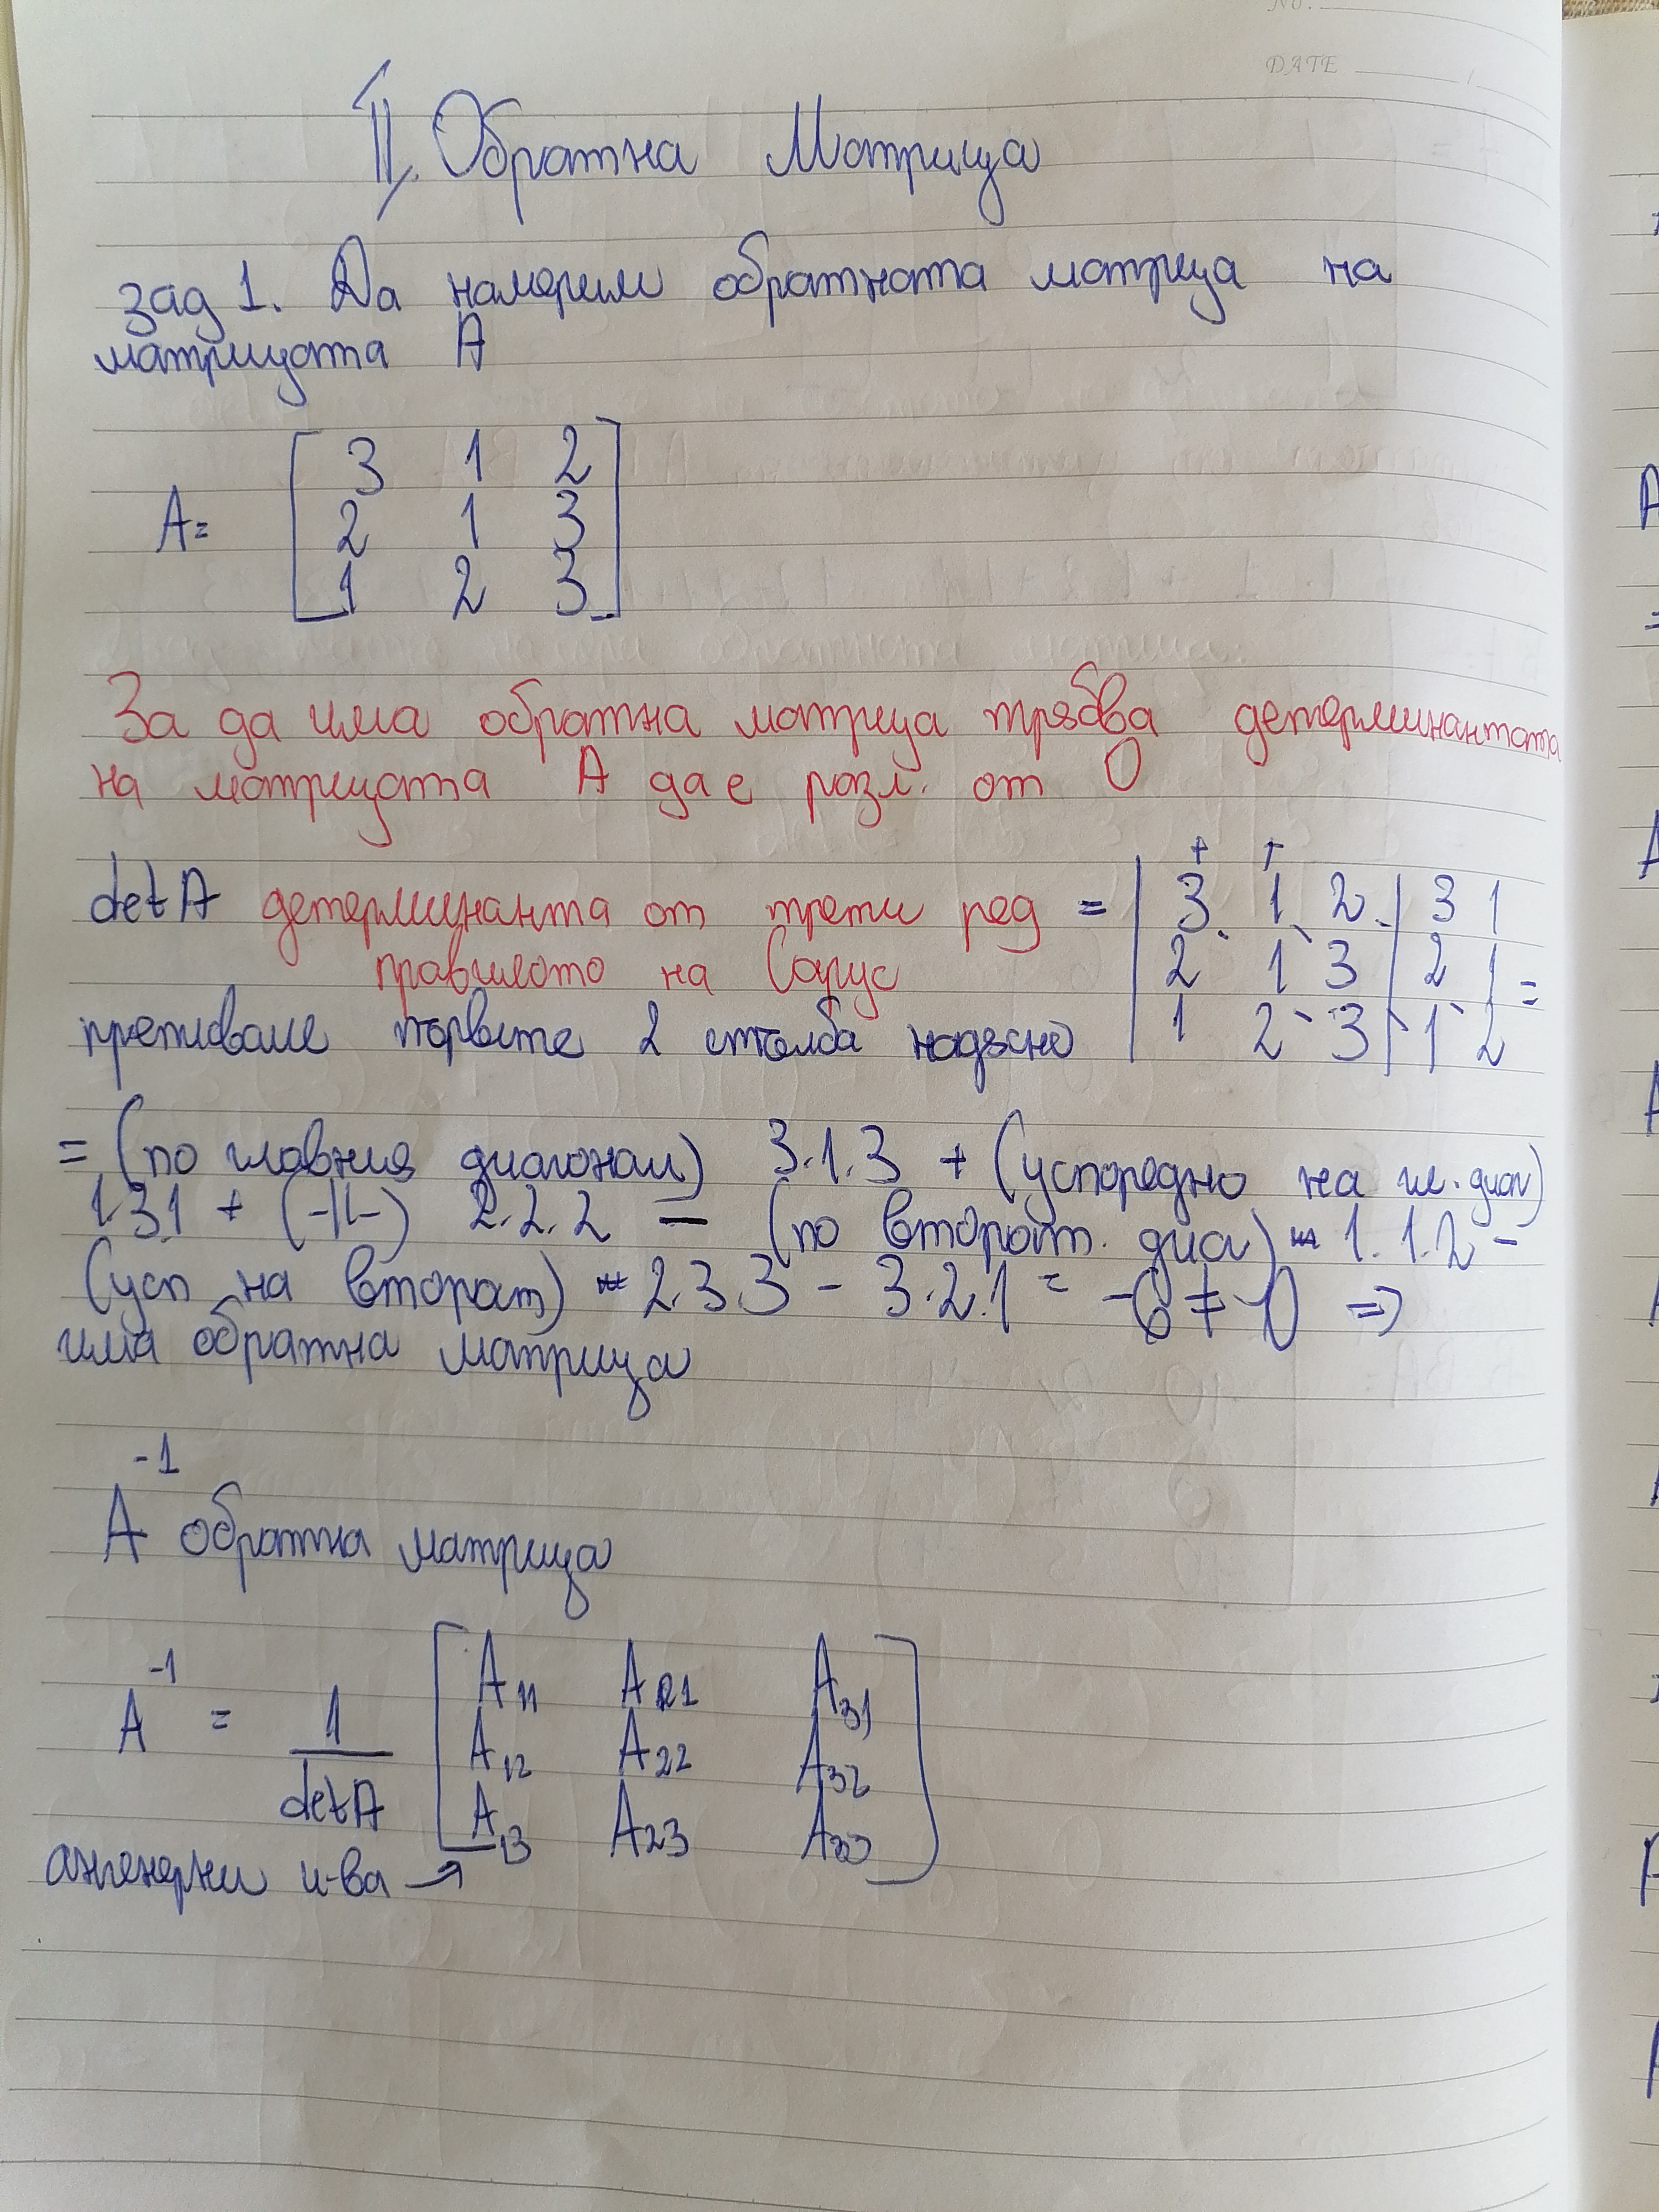 No.
DATE
II. Обратна Матрица
зад 1. Да намерим обратната матрица на
матрицата А
A= [ 3 1 2
2 1 3
1 2 3 ]
За да има обратна матрица трябва детерминантата
на матрицата А да е разл. от 0
det A детерминанта от трети ред = | 3 1 2 | 3 1
правилото на Сарус 2 1 3 | 2 1 =
преписваме първите 2 стълба надясно 1 2 3 | 1 2
= (по главния диагонал) 3.1.3 + (успоредно на гл. диаг)
1.3.1 + (-||-) 2.2.2 — (по второст. диаг) 1.1.2 -
(усп на второст) 2.3.3 - 3.2.1 = -6 ≠ 0 =>
има обратна матрица
-1
A обратна матрица
A⁻¹ = 1/detA [ A11 A21 A31
A12 A22 A32
A13 A23 A33 ]
к-ва →